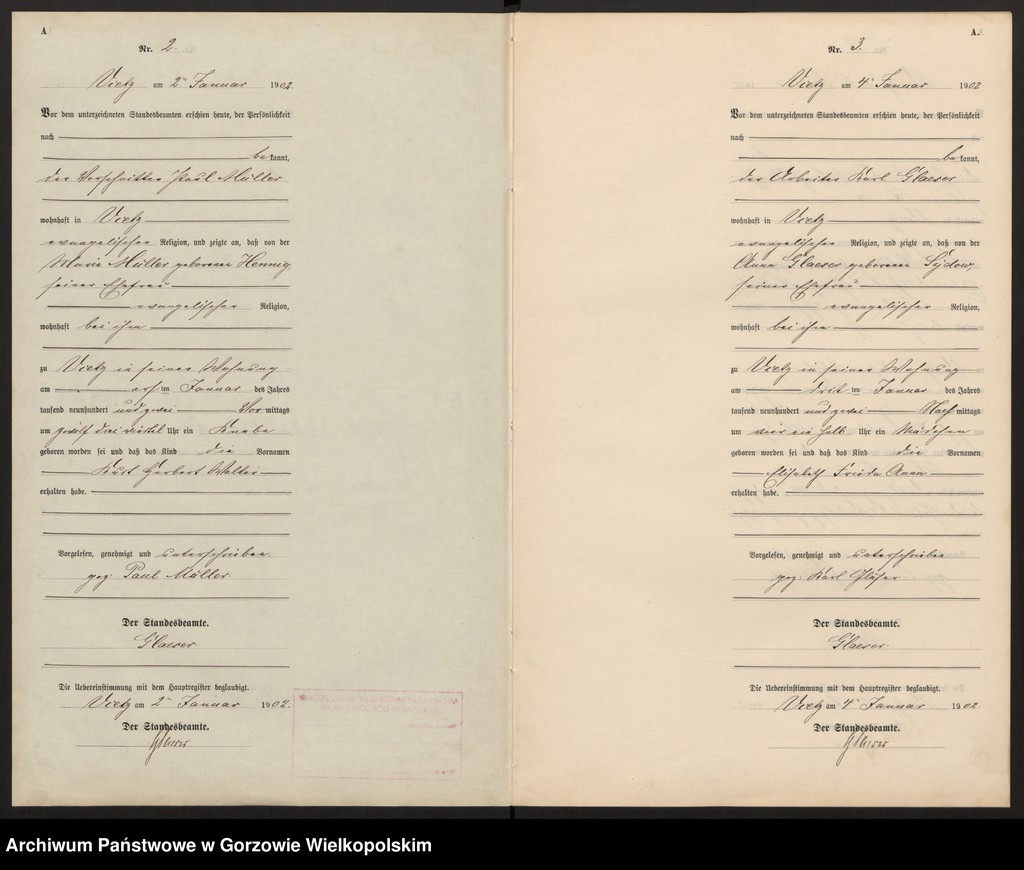 A
Nr. 2.
Vietz am 2ten Januar 1902.
Vor dem unterzeichneten Standesbeamten erschien heute, der Persönlichkeit
nach
be kannt,
der Vorschnitter Paul Müller
wohnhaft in Vietz
evangelischer Religion, und zeigte an, daß von der
Marie Müller geborenen Hennig,
seiner Ehefrau
evangelischer Religion,
wohnhaft bei ihm
zu Vietz in seiner Wohnung
am ersten Januar des Jahres
tausend neunhundert und zwei Vor mittags
um zwölf drei viertel Uhr ein Knabe
geboren worden sei und daß das Kind die Vornamen
Kurt Herbert Walter
erhalten habe.
Vorgelesen, genehmigt und unterschrieben
gez. Paul Müller
Der Standesbeamte.
Glaeser
Die Uebereinstimmung mit dem Hauptregister beglaubigt.
Vietz am 2ten Januar 1902.
Der Standesbeamte.
Glaeser
A.
Nr. 3.
Vietz am 4ten Januar 1902
Vor dem unterzeichneten Standesbeamten erschien heute, der Persönlichkeit
nach
be kannt,
der Arbeiter Karl Glaeser
wohnhaft in Vietz
evangelischer Religion, und zeigte an, daß von der
Anna Glaeser geborenen Sydow,
seiner Ehefrau
evangelischer Religion,
wohnhaft bei ihm
zu Vietz in seiner Wohnung
am dritten Januar des Jahres
tausend neunhundert und zwei Nach mittags
um vier ein halb Uhr ein Mädchen
geboren worden sei und daß das Kind die Vornamen
Elisabeth Frieda Anna
erhalten habe.
Vorgelesen, genehmigt und unterschrieben
gez. Karl Gläser
Der Standesbeamte.
Glaeser
Die Uebereinstimmung mit dem Hauptregister beglaubigt.
Vietz am 4ten Januar 1902
Der Standesbeamte.
Glaeser
Archiwum Państwowe w Gorzowie Wielkopolskim